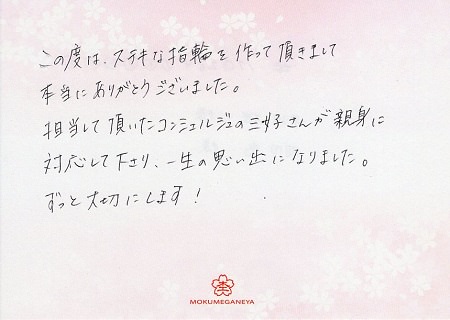 この度は、ステキな指輪を作って頂きまして
本当にありがとうございました。
担当して頂いたコンシェルジュの三好さんが親身に
対応して下さり、一生の思い出になりました。
ずっと大切にします!
MOKUMEGANEYA